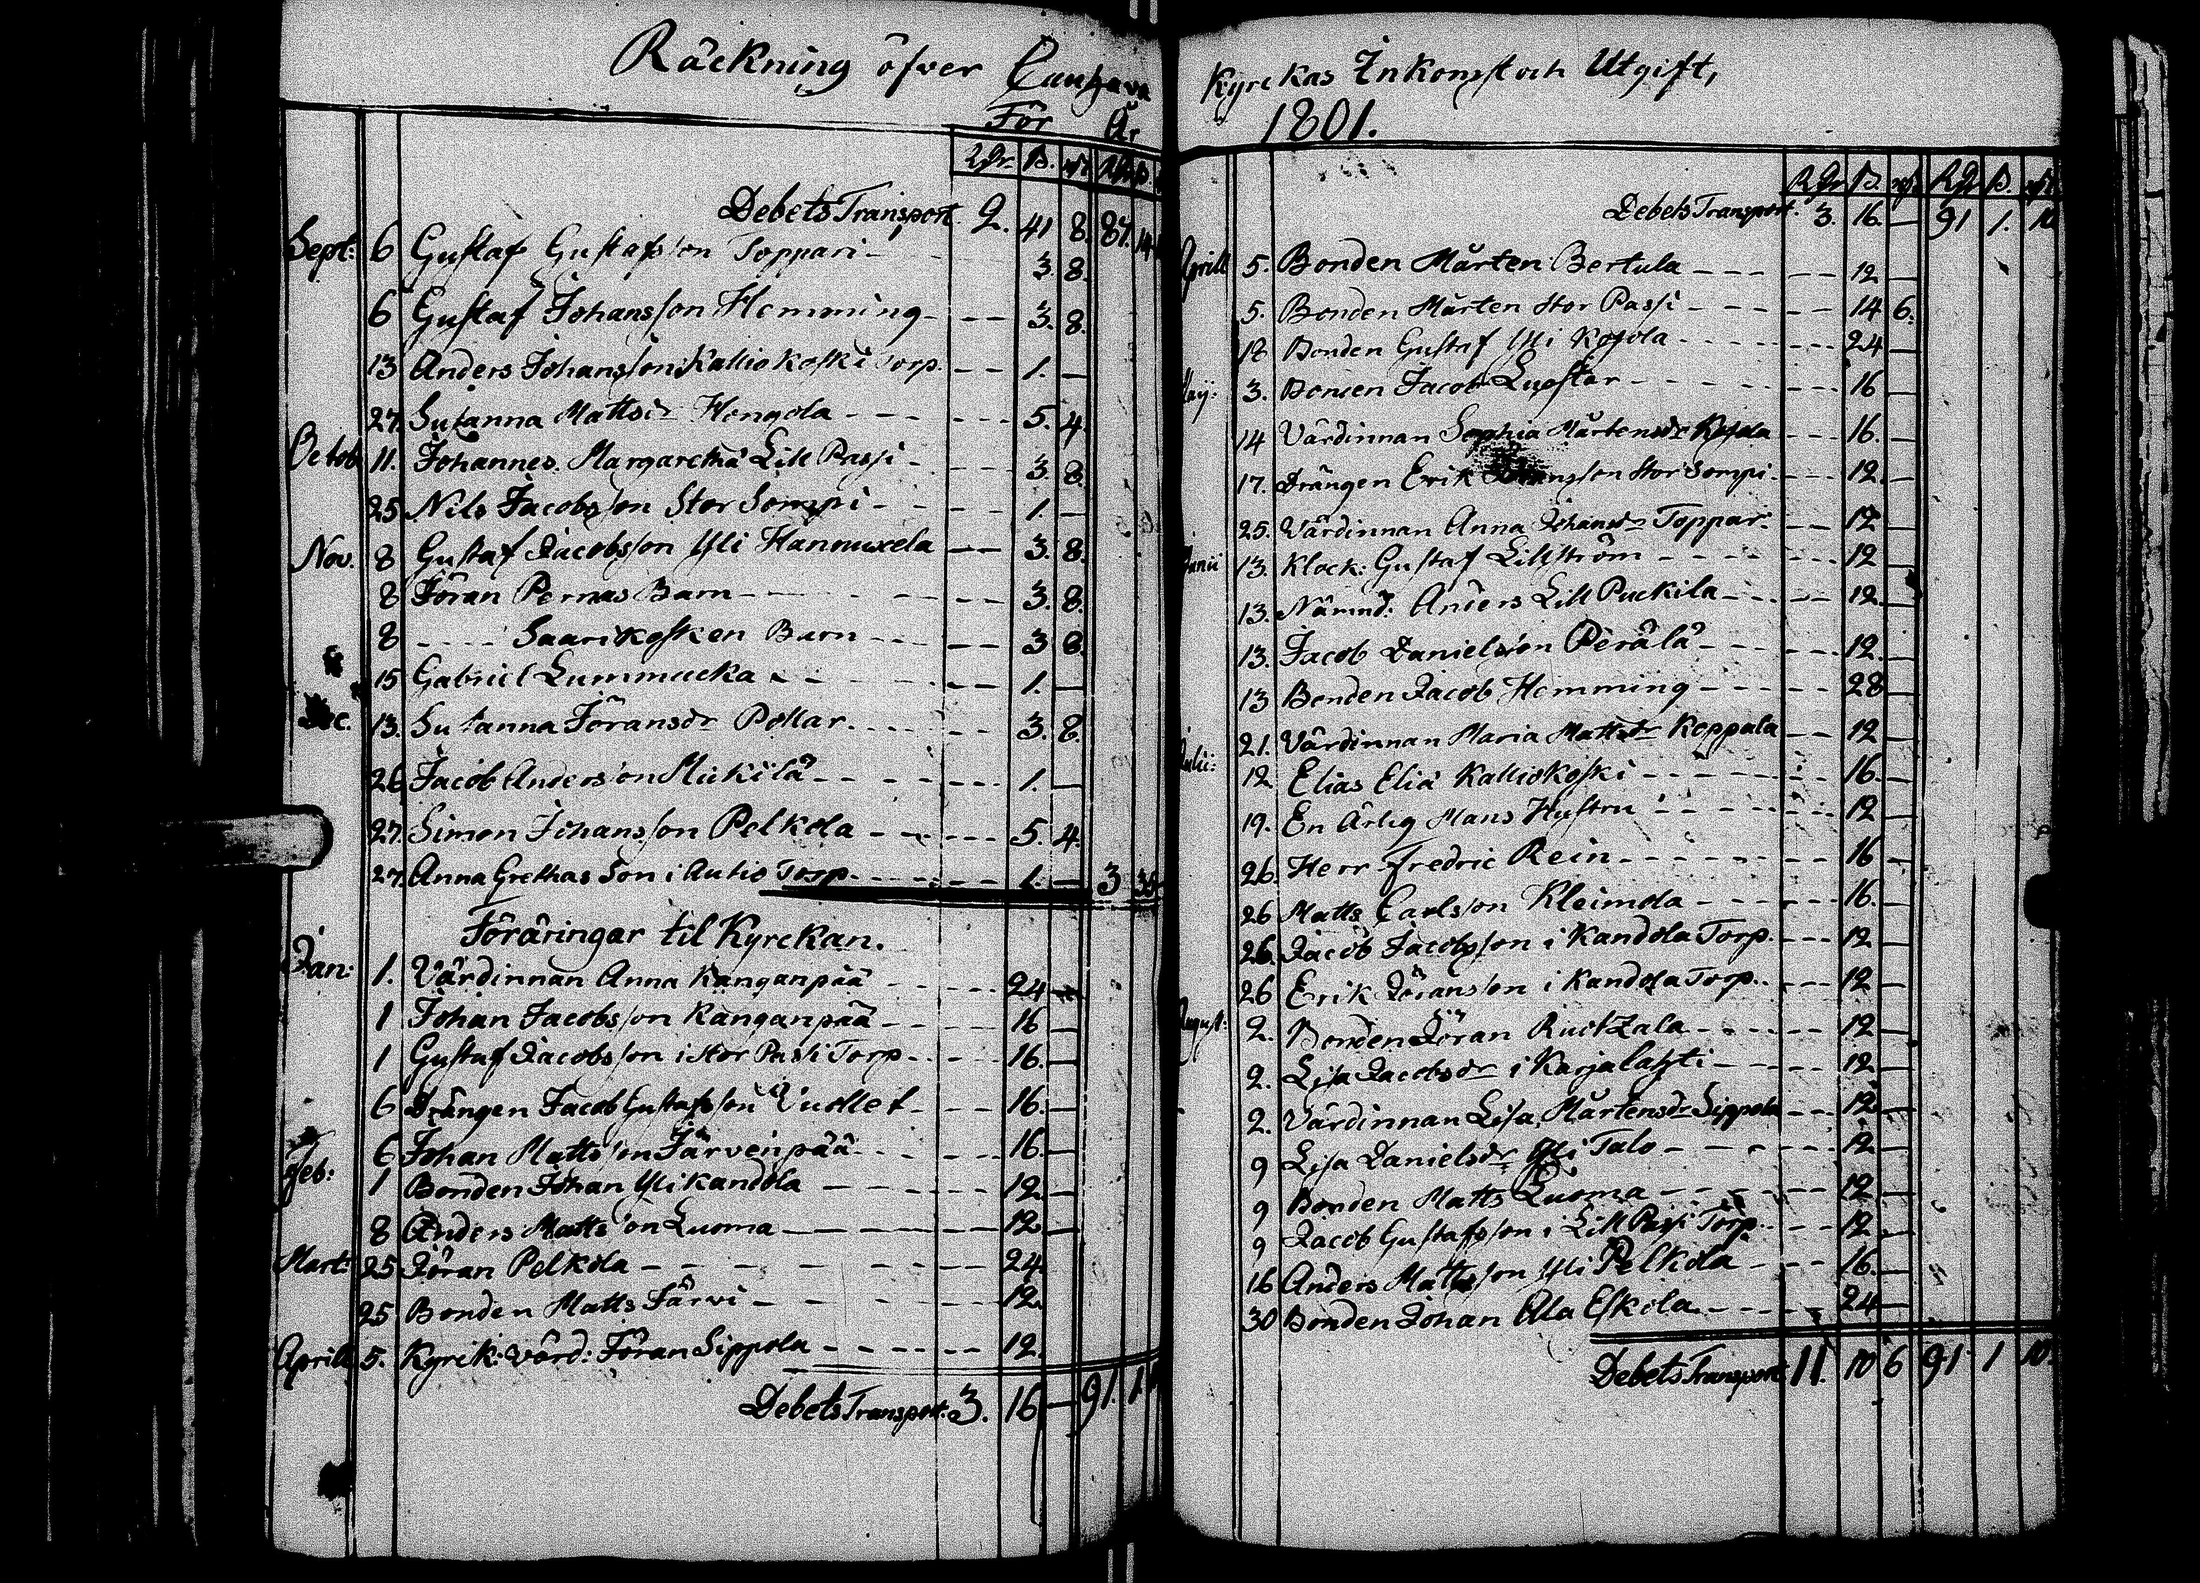 Räckning öfver
För År
RDr. ß. rst RDr ß.
Debets Transport 2. 41 8. 87. 14
Sept: 6 Gustaf Gustafsson Toppari - 3. 8.
6 Gustaf Johansson Hemming - - - 3. 8.
13 Anders Johansson Kalliokoski Torp. - - 1. -
27. Susanna Mattsdr Hongola - - - 5. 4.
Octob 11. Johannes Margaretha Lill Passi - 3. 8.
25 Nils Jacobsson Stor Sompi - - 1. -
Nov. 8 Gustaf Jacobsson Yli Hannuxela - - 3. 8.
8 Jöran Pernas Barn - - - 3. 8.
8 - - - Saarikosken Barn - - - 3 8.
15 Gabriel Lummucka - - - 1. -
Dec. 13. Susanna Jöransdr Pollar. - - - 3. 8.
26 Jacob Andersson Mickilä - - - 1. -
27. Simon Johansson Pelkola - - - 5. 4.
27. Anna Grethas Son i Autio Torp - - - 1. - 3 35
Föräringar til Kyrckan.
Jan: 1. Värdinnan Anna Kanganpää - - - 24 -
1 Johan Jacobsson Kanganpää - - - 16 -
1 Gustaf Jacobsson i Stor Passi Torp - - - 16. -
6 Drängen Jacob Gustafsson Vuollet - - - 16. -
6 Johan Mattsson Järvenpää - - - 16. -
Feb: 1 Bonden Johan Yli Kandola - - - 12. -
8 Anders Mattsson Luoma - - - 12. -
Mart: 25 Jöran Pelkola - - - 24.
25 Bonden Matts Järvi - - - 12.
Aprill 5. Kyrck: värd: Jöran Sippola - - - 12.
Debets Transport. 3. 16 - 91. 1
Kyrckas Inkomst och Utgift,
1801.
RDr ß. rst RDr ß. rst
Debets Transport. 3. 16. - 91 1. 10
Aprill 5. Bonden Mårten Bertula - - - 12 -
5. Bonden Mårten Stor Passi - - - 14 6.
18 Bonden Gustaf Yli Kojola - - - 24 -
Maij: 3. Bonden Jacob - - - 16 -
14 Värdinnan Sophia Mårtensdr Kojola - - - 16. -
17. Drängen Erik Stor Sompi - - - 12. -
25. Värdinnan Anna Johansdr Toppar - - 12 -
Junii 13. Klock: Gustaf Lillström - - - 12 -
13. Nämnd: Anders Lill Puckila - - - 12. -
13. Jacob Danielsson Perälä - - - 12. -
13 Bonden Jacob Hemming - - - 28 -
21. Värdinnan Maria Mattsdr Koppala - - 12 -
Julii: 12 Elias Eliä Kalliokoski - - - 16. -
19. En Ärlig Mans Hustru - - - 12 -
26. Herr Fredric Rein - - - 16 -
26 Matts Carlsson Kleimola - - - 16. -
26. Jacob Jacobsson i Kandola Torp. - - - 12 -
26 Erik Jöransson i Kandola Torp. - - 12 -
August: 2. Bonden Jöran Ruotzala - - - 12 -
2. Lisa Jacobsdr i Karjalahti - - - 12 -
2. Värdinnan Lisa Mårtensdr Sippola - - 12 -
9 Lisa Danielsdr Yli Talo - - - 12 -
9 Bonden Matts Luoma - - - 12 -
9 Jacob Gustafsson i Lill Passi Torp. - - 12 -
16 Anders Mattsson Yli Pelkola - - - 16. -
30 Bonden Johan Ala Eskola - - - 24 -
Debets Transport 11. 10 6 91 1 10.